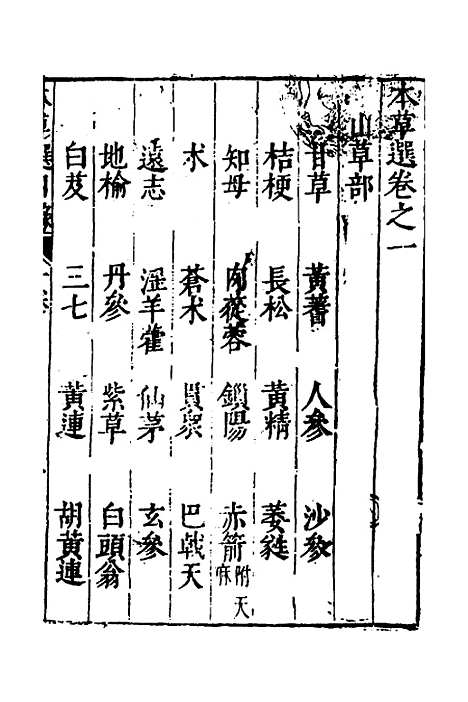 本草選卷之一
山草部
甘草 黃蓍 人參 沙參
桔梗 長松 黃精 萎蕤
知母 肉蓯蓉 鎖陽 赤箭附天麻
术 蒼术 貫衆 巴戟天
遠志 淫羊藿 仙茅 玄參
地榆 丹參 紫草 白頭翁
白芨 三七 黃連 胡黃連
本草選目錄